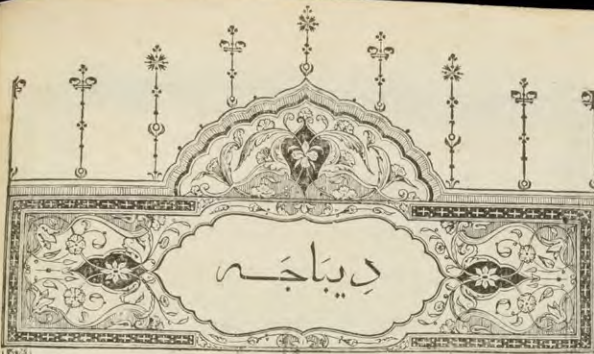 دِيبَاجَـه